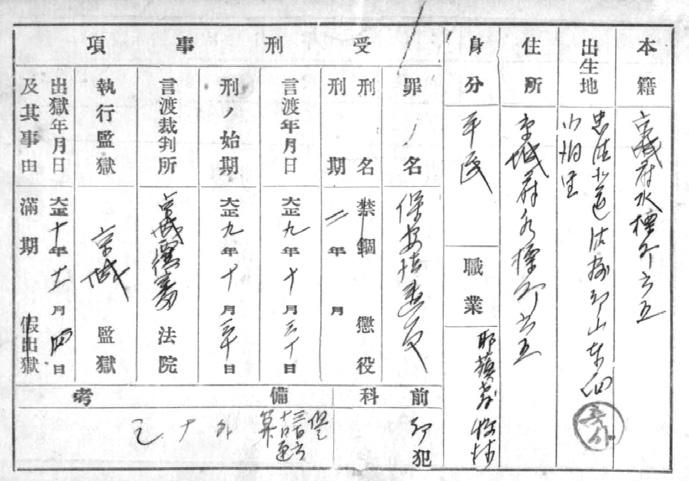 本籍 京城府水標町六五
出生地 忠清北道清州郡山東面
小柏里
住所 京城府水標町六五
身分 平民
職業 耶蘇教牧師
受刑事項
罪名 保安法違反
刑名 禁錮 懲役
刑期 二年 月
言渡年月日 大正九年十月三十日
刑ノ始期 大正九年十月三十日
言渡裁判所 京城覆審法院
執行監獄 京城監獄
出獄年月日 大正十年十一月四日
及其事由 滿期 假出獄
前科 初犯
備考